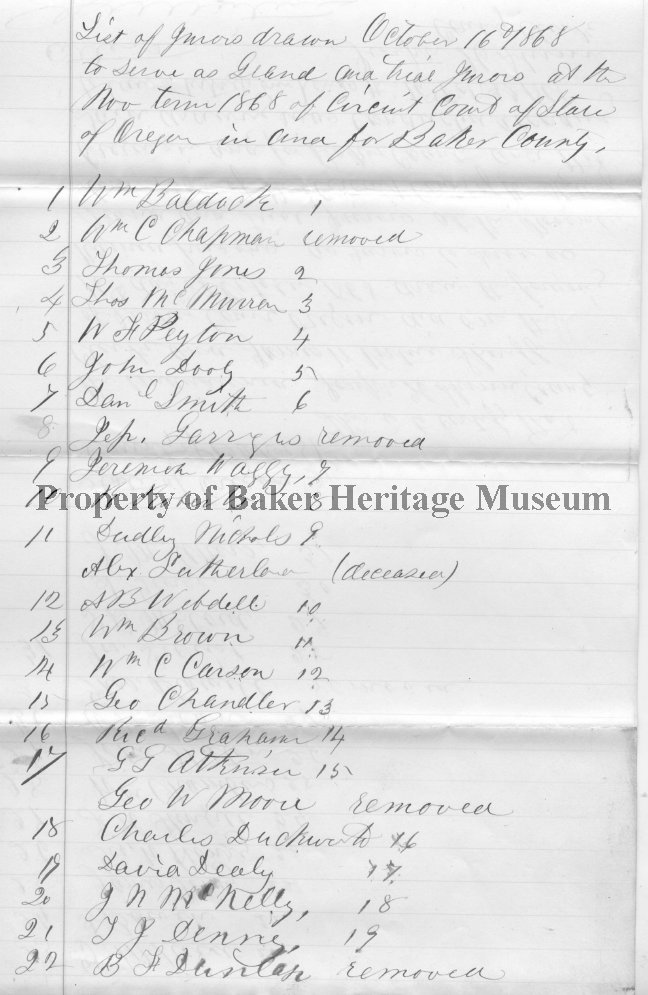 List of Jurors drawn October 16th 1868
to serve as Grand and trial Jurors at the
Nov term 1868 of Circuit Court of State
of Oregon in and for Baker County,
1 Wm Baldock 1
2 Wm C Chapman removed
3 Thomas Jones 2
4 Thos McMurren 3
5 W F Peyton 4
6 John Dooly 5
7 Danl Smith 6
8 removed
9 Jeremiah 7
10 8
Property of Baker Heritage Museum
11 Dudley Nichols 9
Alex (deceased)
12 A B Webdell 10
13 Wm Brown 11
14 Wm C Carson 12
15 Geo Chandler 13
16 Ricd Graham 14
17 Atkinson 15
Geo W Moore removed
18 Charles Duckworth 16
19 David Dealy 17
20 J N McKelly, 18
21 T J Dennie, 19
22 B F Dunlap removed